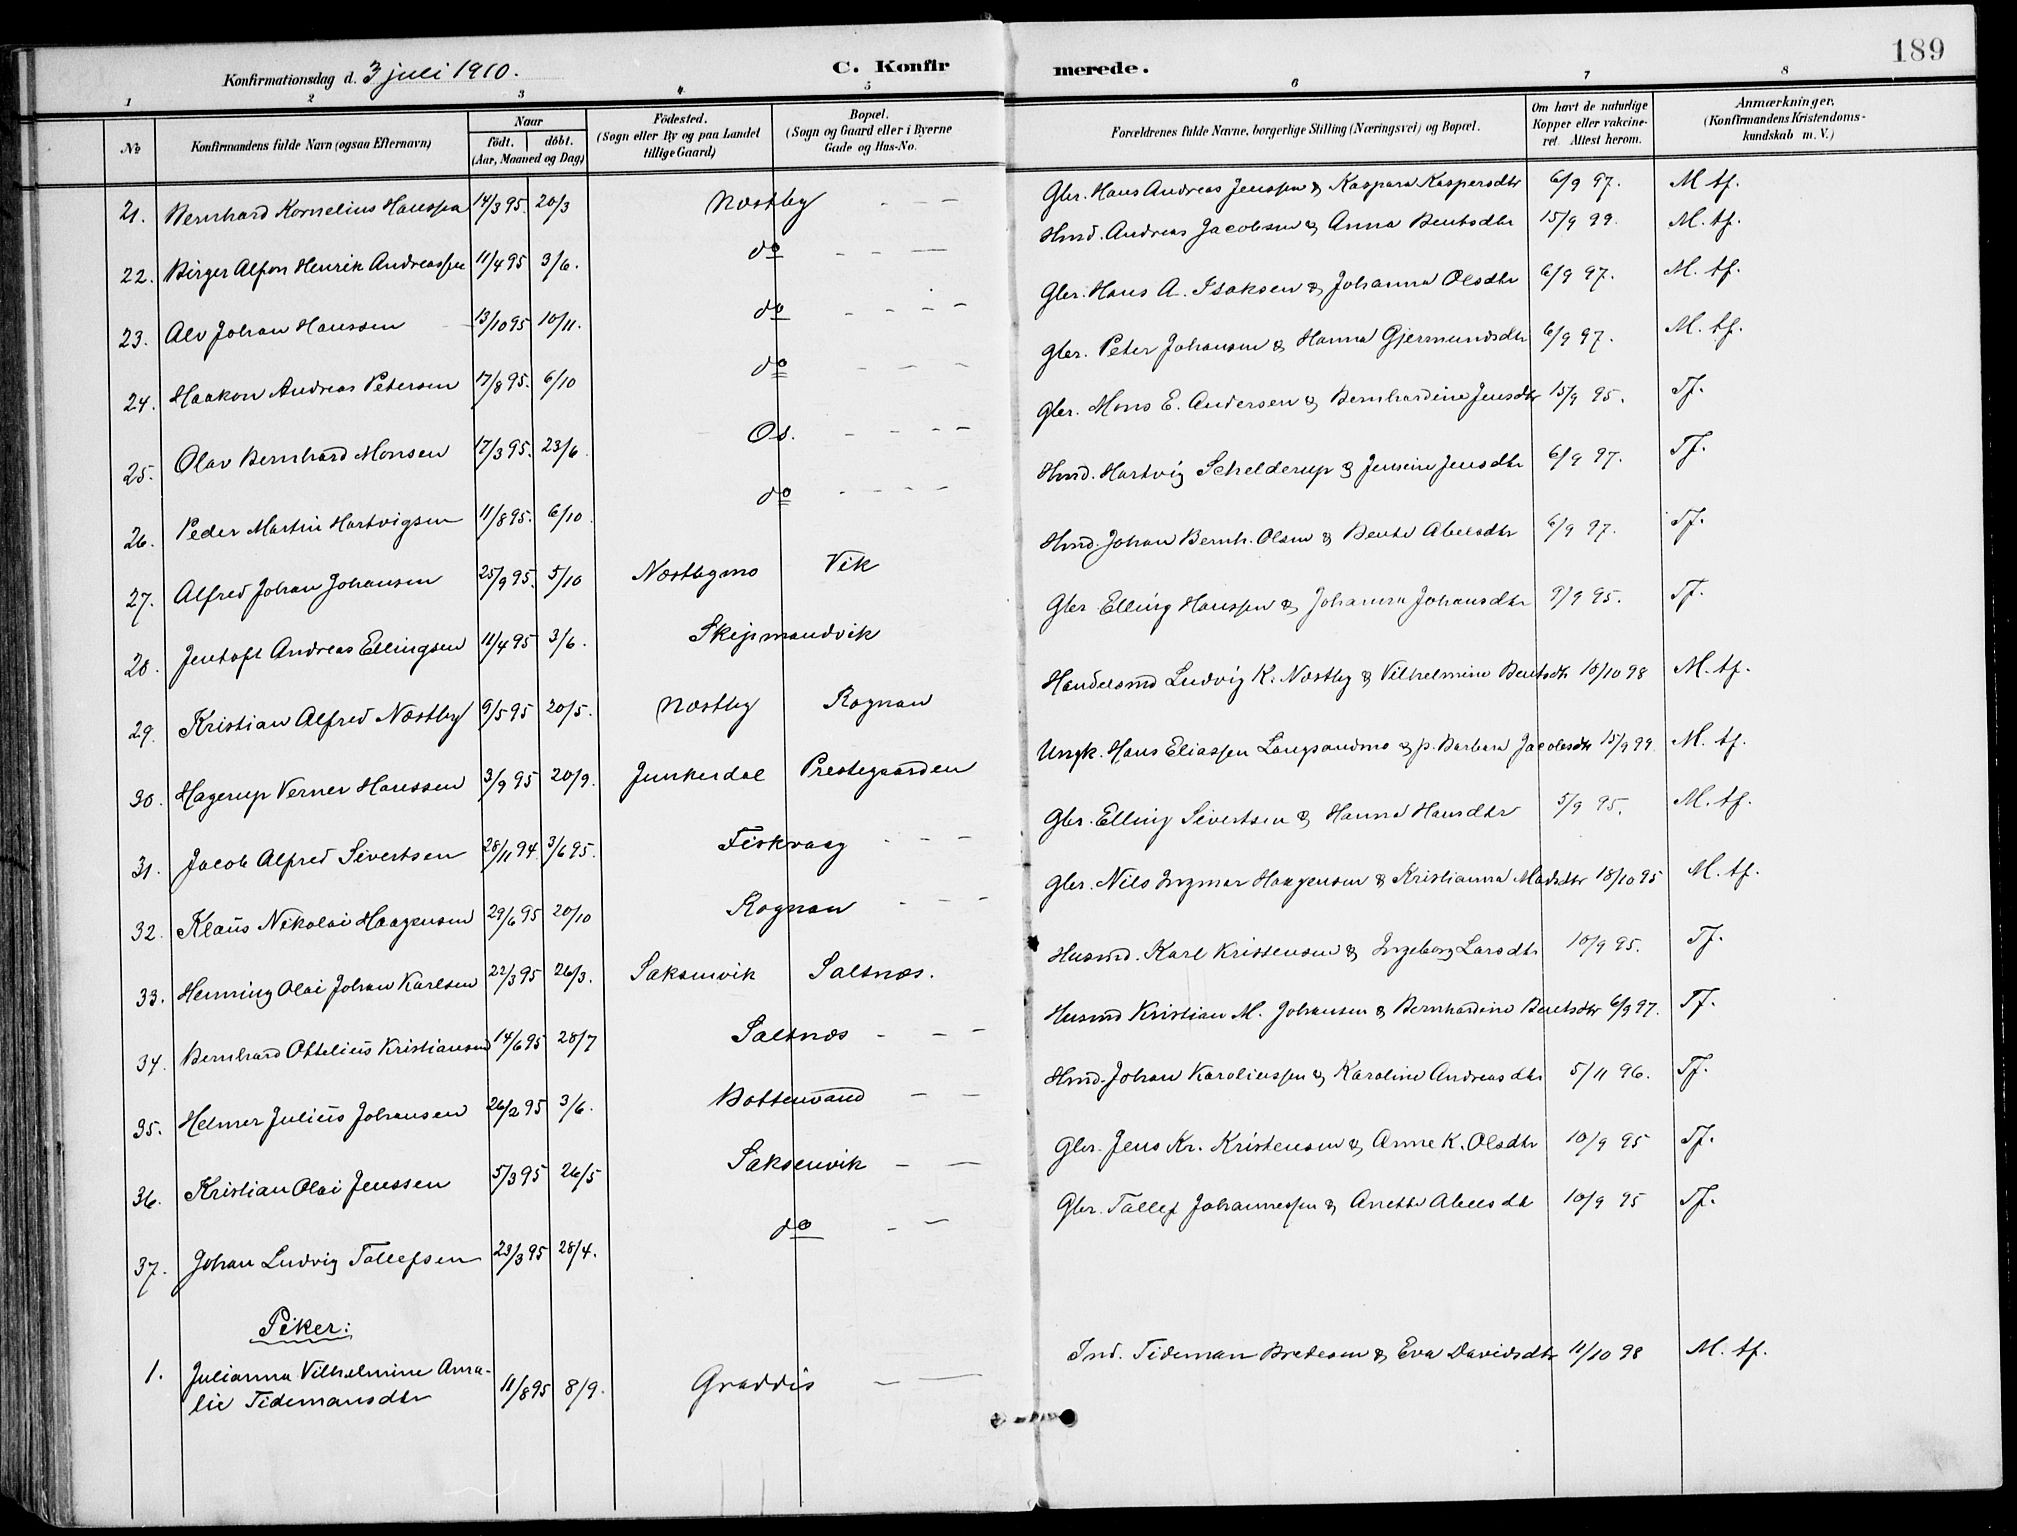 189
Konfirmationsdag d. 3 juli 1910. C. Konfirmerede.
1 2 3 4 5 6 7 8
No Konfirmandens fulde Navn (ogsaa Efternavn) Naar født. døbt. (Aar, Maaned og Dag) Fødested. (Sogn eller By og paa Landet tillige Gaard) Bopæl. (Sogn og Gaard eller i Byerne Gade og Hus-No. Forældrenes fulde Navne, borgerlige Stilling (Næringsvei) og Bopæl. Om havt de naturlige Kopper eller vakcineret. Attest herom. Anmærkninger, (Konfirmandens Kristendomskundskab m. V.)
21. Bernhard Kornelius Hanssen 14/3 95. 20/3 Næstby - - - Gbr. Hans Andreas Jenssen & Kaspara Kaspersdtr 6/9 97. M. tf.
22. Birger Alfon Henrik Andreassen 11/4 95 3/6. do - - - Hmd. Andreas Jacobsen & Anna Bentsdtr 15/9 99. M. tf.
23. Alv Johan Hanssen 13/10 95 10/11. do - - - Gbr. Hans A. Isaksen & Johanna Olsdtr 6/9 97. M. tf.
24. Haakon Andreas Petersen 17/8 95. 6/10 do - - - Gbr. Peter Johansen & Hanna Gjermundsdtr 6/9 97. M. tf.
25. Olav Bernhard Monsen 17/3 95. 23/6 Os. - - - - Gbr. Mons E. Andersen & Bernhardine Jensdtr 15/9 95. Tf.
26. Peder Martin Hartvigsen 11/8 95. 6/10 do - - - - Hmd. Hartvig Schelderup & Jensine Jensdtr 6/9 97. Tf.
27. Alfred Johan Johansen 25/9 95. 5/10 Næstbymo Vik Hmd. Johan Bernh. Olsen & Bente Abelsdtr 6/9 97. Tf.
28. Jentoft Andreas Ellingsen 11/4 95 3/6. Skejsmandvik Gbr Elling Hanssen & Johanna Johansdtr 9/9 95. Tf.
29. Kristian Alfred Næstby 9/5 95 20/5. Næstby Rognan Handelsmd Ludvig K. Næstby & Vilhelmine Bentsdtr 18/10 98 M. tf.
30. Hagerup Verner Hanssen 3/9 95 20/9. Junkerdal Prestegaarden Ungk. Hans Eliassen Langsandmo & p. Barbara Jacobsdtr 15/9 99. M. tf.
31. Jacob Alfred Sivertsen 28/11 94. 3/6 95. Fiskvaag - - - Gbr. Elling Sivertsen & Hanna Hansdtr 5/9 95. M. tf.
32. Klaus Nikolai Haagensen 29/6 95 20/10 Rognan - - - Gbr. Nils Ingmar Haagensen & Kristianna Madsdtr 18/10 95 M. tf.
33. Henning Olai Johan Karlsen 22/3 95 26/3. Saksenvik Saltnæs. Husmd. Karl Kristensen & Ingeborg Larsdtr 10/9 95. Tf.
34. Bernhard Ottelius Kristiansen 14/6 95 28/7 Saltnæs - - - Husmd Kristian M. Johansen & Bernhardine Bentsdtr 6/9 97. Tf.
35. Helmer Julius Johansen 26/2 95 3/6. Bottenvand - - Hmd. Johan Karoliussen & Karoline Andreasdtr 5/11 96. Tf.
36. Kristian Olai Jenssen 5/3 95 26/5 Saksenvik - - Gbr. Jens Kr. Kristensen & Anne K. Olsdtr 10/9 95 Tf.
37. Johan Ludvig Tollefsen 23/3 95 28/4. do - - Gbr. Tollef Johannessen & Anette Abelsdtr 10/9 95 Tf.
Piker:
1. Julianna Vilhelmine Ama- 11/8 95 8/9. Graddis - - Ind. Tideman Bredesen & Eva Davidsdtr 11/10 98 M. tf.
lie Tidemansdtr